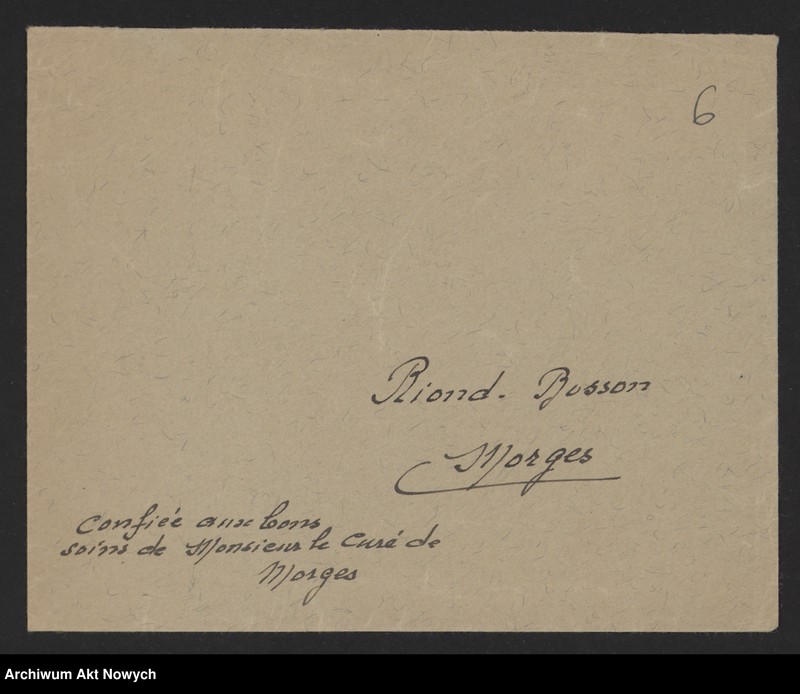 6
Riond-Bosson
Morges
Confiée aux bons
soins de Monsieur le Curé de
Morges
Archiwum Akt Nowych